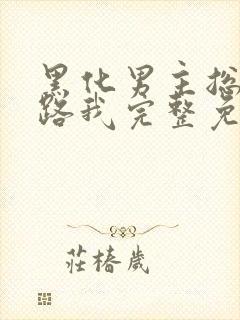 黑化男主总
路我完整免
莊椿歲